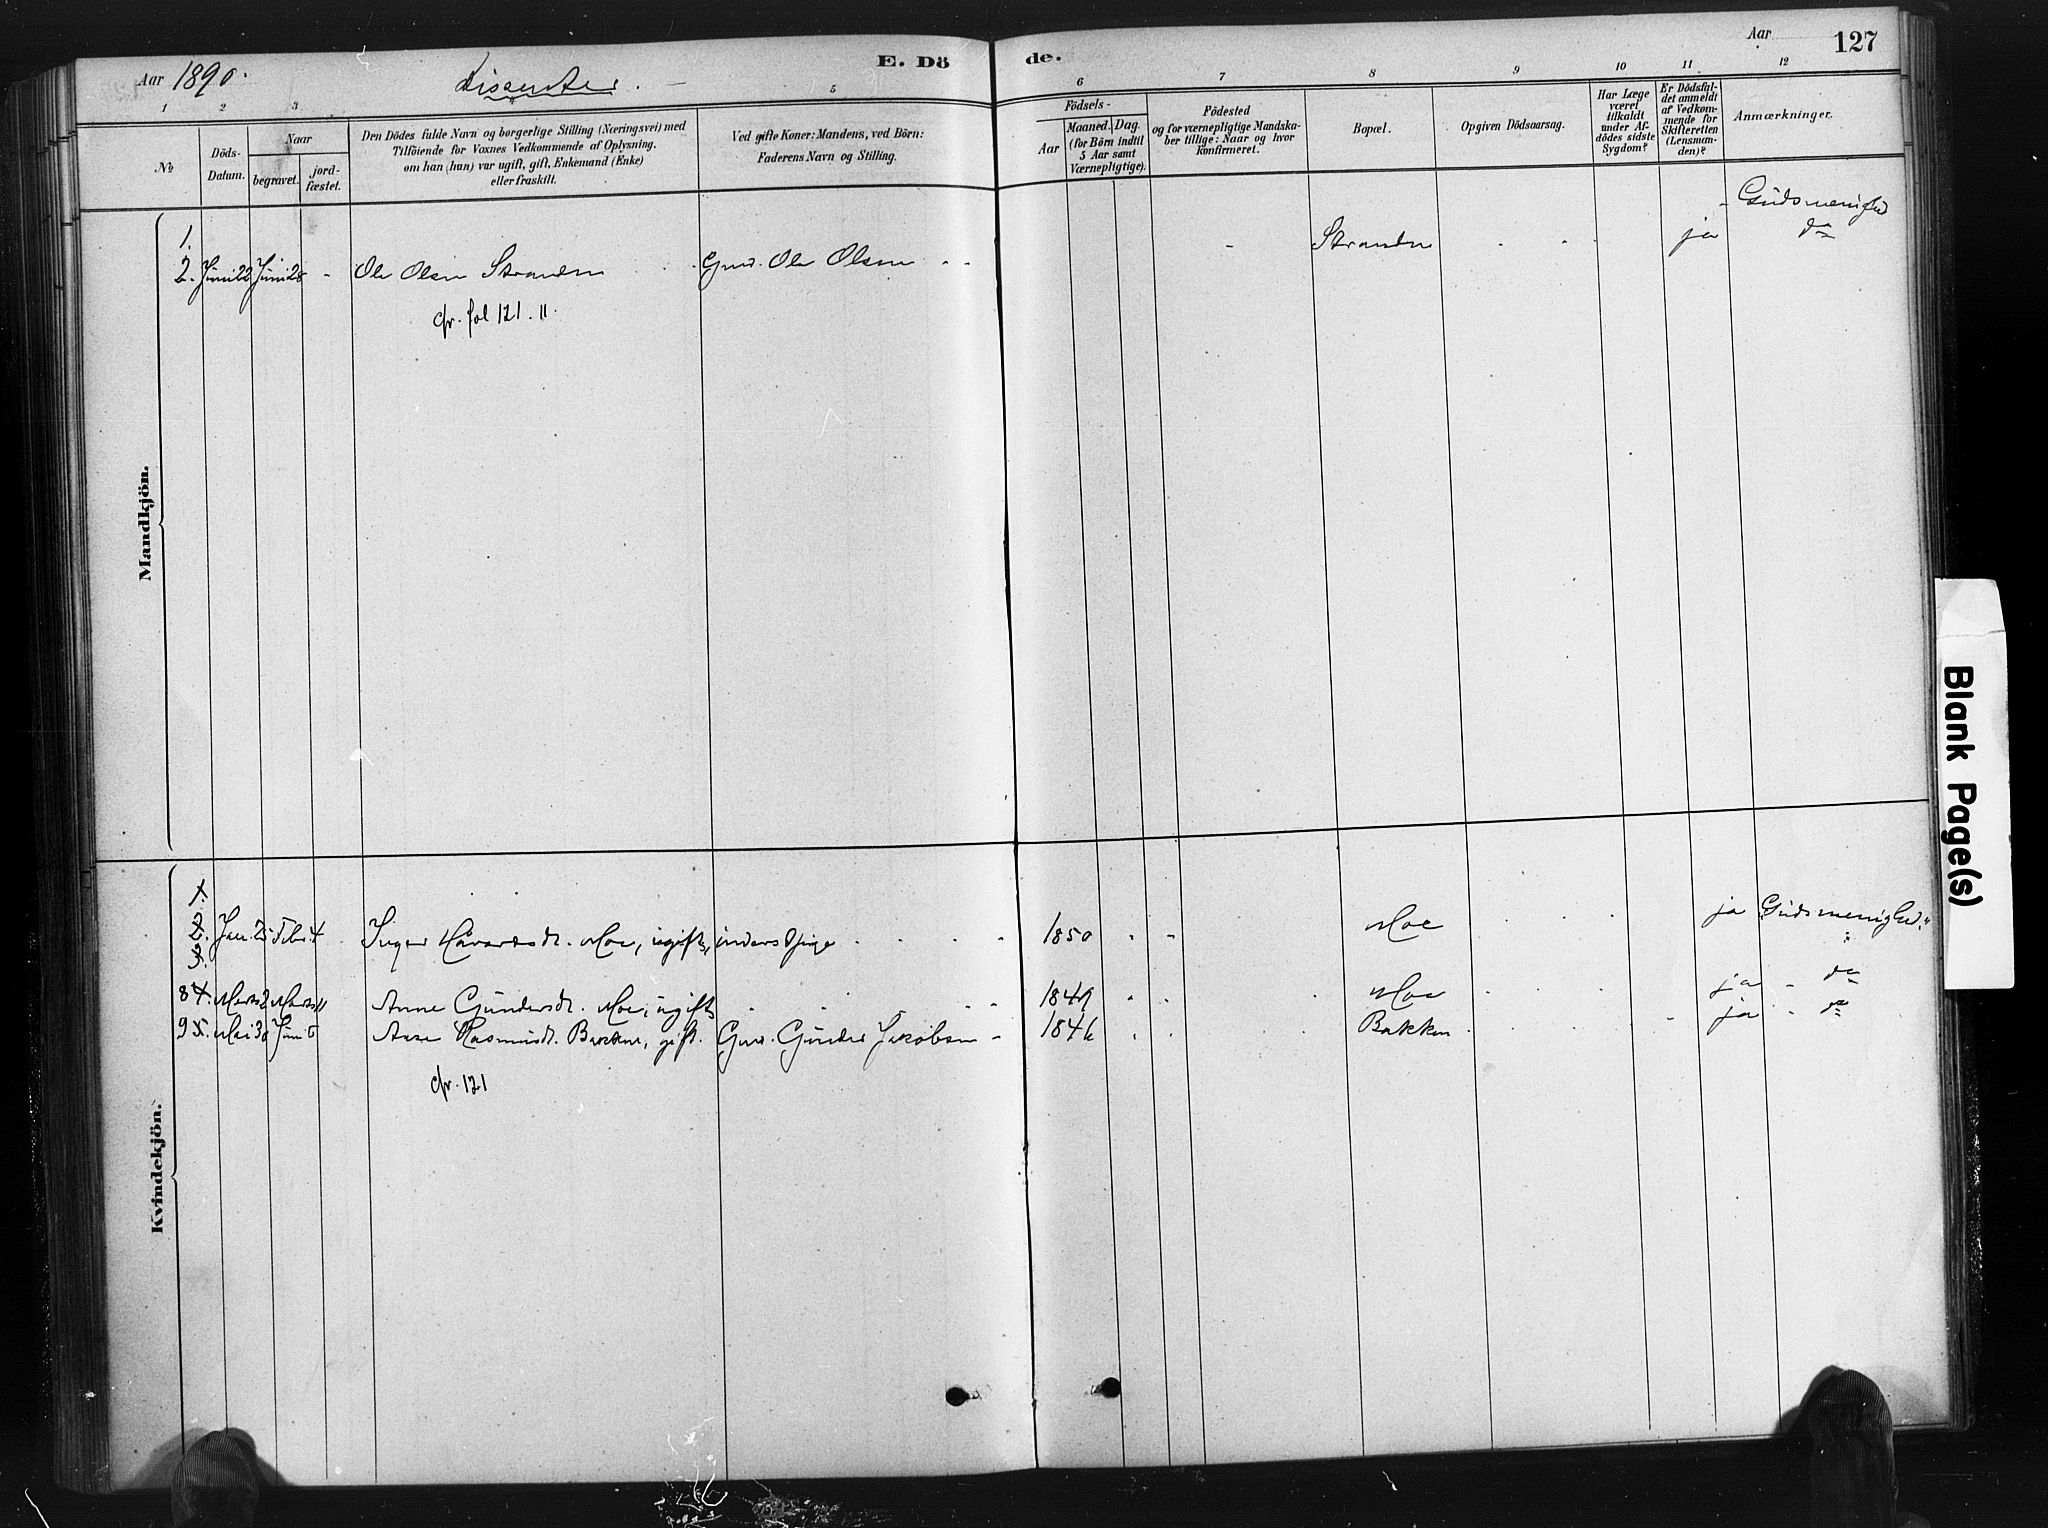 Aar 1890.
Dissenter.
E. Döde.
Aar
127
1 2 3 4 5 6 7 8 9 10 11 12
№
Döds-Datum.
Naar
begravet.
jord-fæstet.
Den Dödes fulde Navn og borgerlige Stilling (Næringsvei) med
Tilföiende for Voxnes Vedkommende af Oplysning,
om han (hun) var ugift, gift, Enkemand (Enke)
eller fraskilt.
Ved gifte Koner: Mandens, ved Börn:
Faderens Navn og Stilling.
Födsels-
Aar
Maaned. Dag.
(for Börn indtil
5 Aar samt
Værnepligtige).
Födested
og for værnepligtige Mandska-
ber tillige: Naar og hvor
konfirmeret.
Bopæl.
Opgiven Dödsaarsag.
Har Læge
været
tilkaldt
under Af-
dödes sidste
Sygdom?
Er Dödsfal-
det anmeldt
af Vedkom-
mende for
Skifteretten
(Lensman-
den)?
Anmærkninger.
Mandkjön.
1. Gudsmenighed
2. Juni 22 Juni 28 - Ole Olsen Stranden Gmd. Ole Olsen - - - Stranden ja do
cfr. fol 121. 11.
Kvindekjön.
1.
2. Jan. 25 Febr 4 Inger Håvardsdt. Moe, ugift, 1850 " " Moe ja Gudsmenighed.
3.
84. Marts 2 Marts 11 Anne Gundersdt. Moe, ugift 1849 " " Moe ja - do
95. Mai 30 Juni 5 Aase Rasmusdt. Bakken, gift. Gmd. Gunder Jakobsen - 1846 Bakken ja - do
cfr. 121
Blank Page(s)